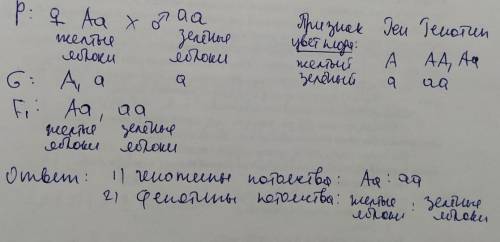 P: ♀ Aa × ♂ aa
желтые яблоки зелёные яблоки
G: A, a a
F₁: Aa, aa
желтые яблоки зелёные яблоки
Признак Ген Генотип
цвет плода:
желтый A AA, Aa
зелёный a aa
Ответ: 1) генотипы потомства: Aa : aa
2) фенотипы потомства: желтые яблоки : зелёные яблоки